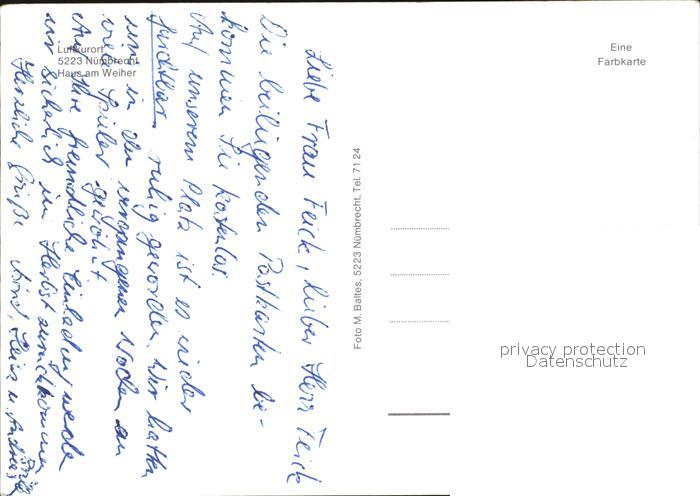 Luftkurort
5223 Nümbrecht
Haus am Weiher
Eine
Farbkarte
Foto M. Baltes, 5223 Nümbrecht, Tel. 71 24
Liebe Frau Feick, lieber Herr Feick
Die beiliegenden Postkarten be-
kommen Sie kostenlos.
Auf unserem Platz ist es wieder
furchtbar ruhig geworden. Wir hatten
uns in den vergangenen Wochen an
viele Spieler gewöhnt
Auf Ihre freundliche Einladung werden
wir sicherlich im Herbst zurückkommen
Herzliche Grüße
privacy protection
Datenschutz